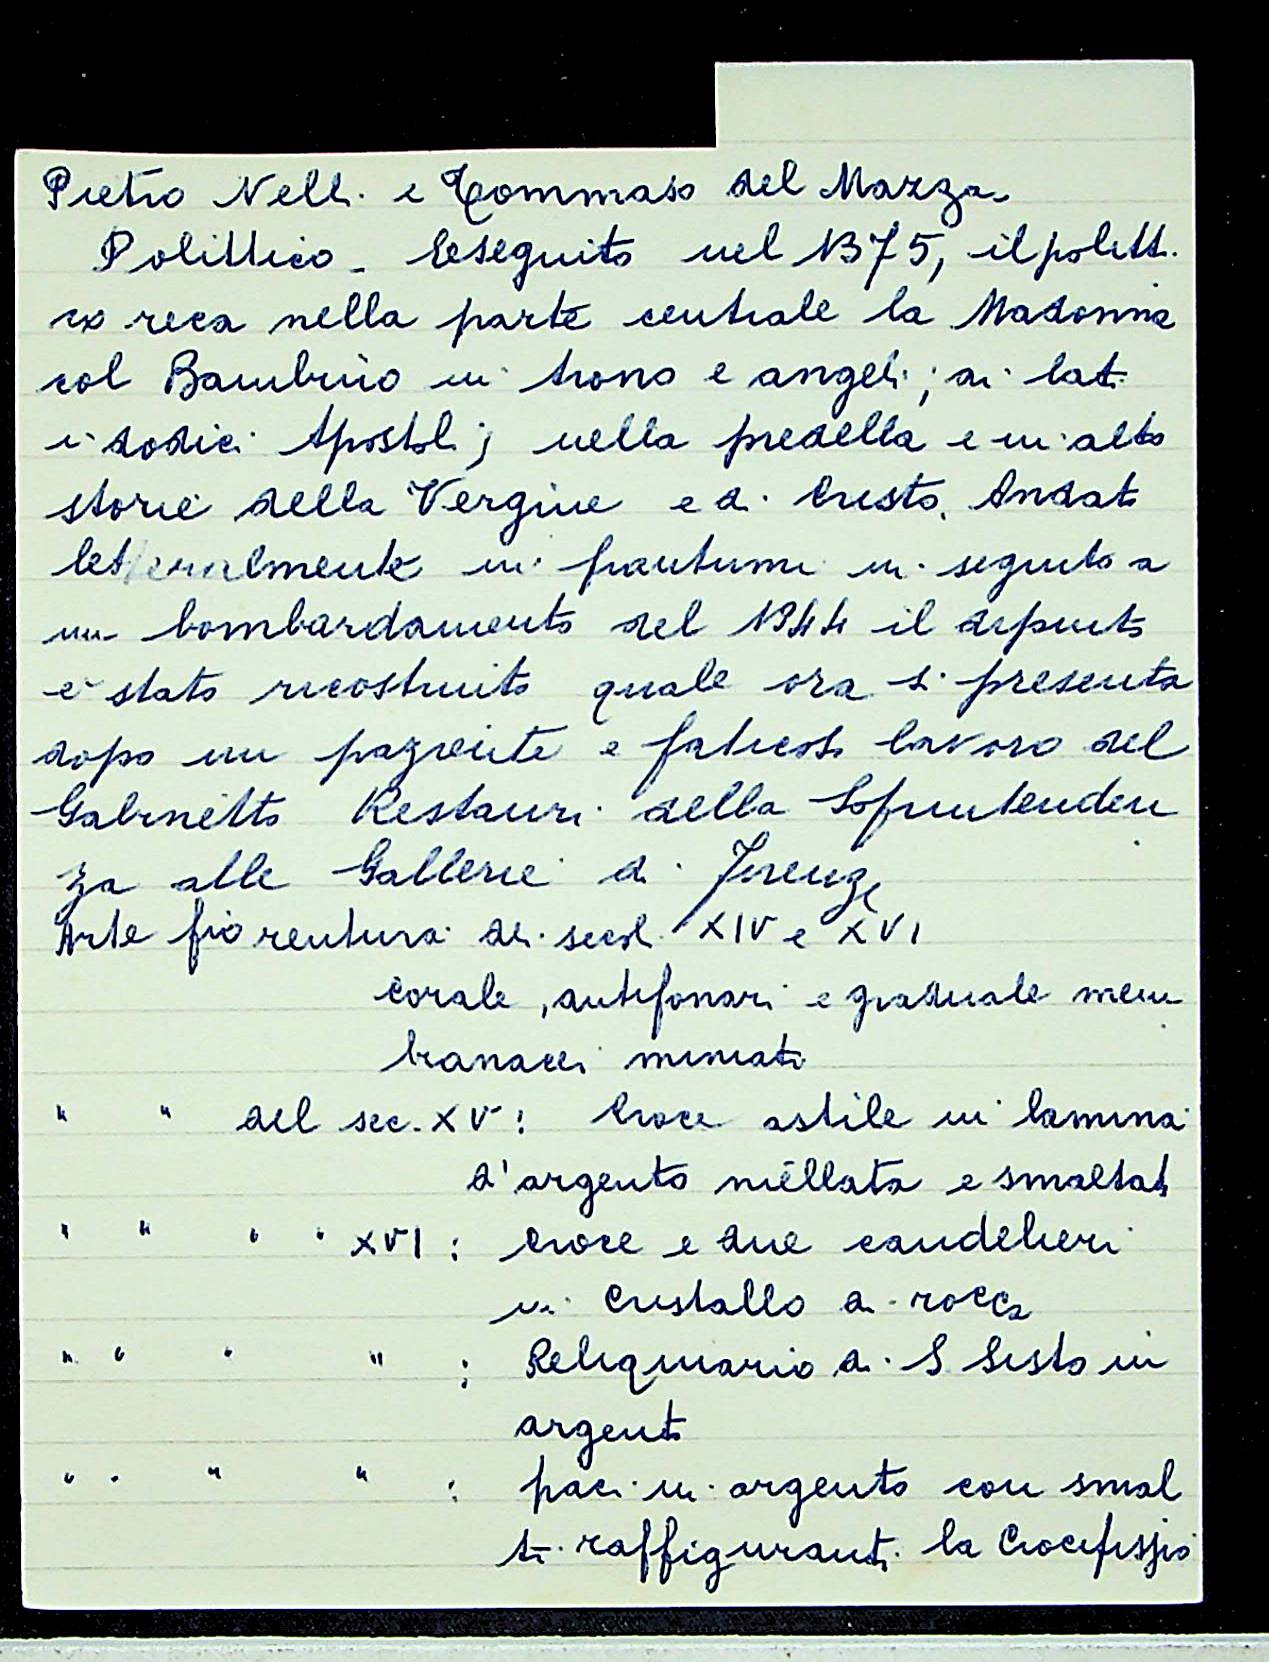 Pietro Nelli e Tommaso del Mazza
Polittico - Eseguito nel 1375, il politt.
co reca nella parte centrale la Madonna
col Bambino in trono e angeli; ai lati
i dodici Apostoli; nella predella e in alto
storie della Vergine e di Cristo. Andato
letteralmente in frantumi in seguito a
un bombardamento del 1944 il dipinto
e' stato ricostruito quale ora si presenta
dopo un paziente e faticoso lavoro del
Gabinetto Restauri della Soprintenden
za alle Gallerie di Firenze
Arte fiorentina dei secoli XIV e XVI
corale, antifonari e graduale mem
branacei miniati
" " del sec. XV: Croce astile in lamina
d'argento niellata e smaltata
" " " " XVI: Croce e due candelieri
in cristallo di rocca
" " " " : Reliquiario di S. Sisto in
argento
" " " " : paci in argento con smal
ti raffiguranti la Crocifissio